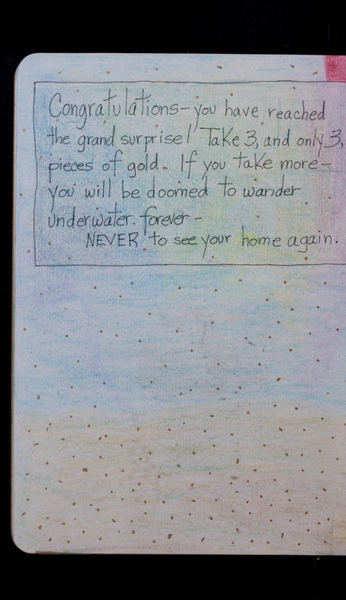 Congratulations - you have reached
the grand surprise! Take 3, and only 3,
pieces of gold. If you take more -
you will be doomed to wander
underwater forever -
NEVER to see your home again.